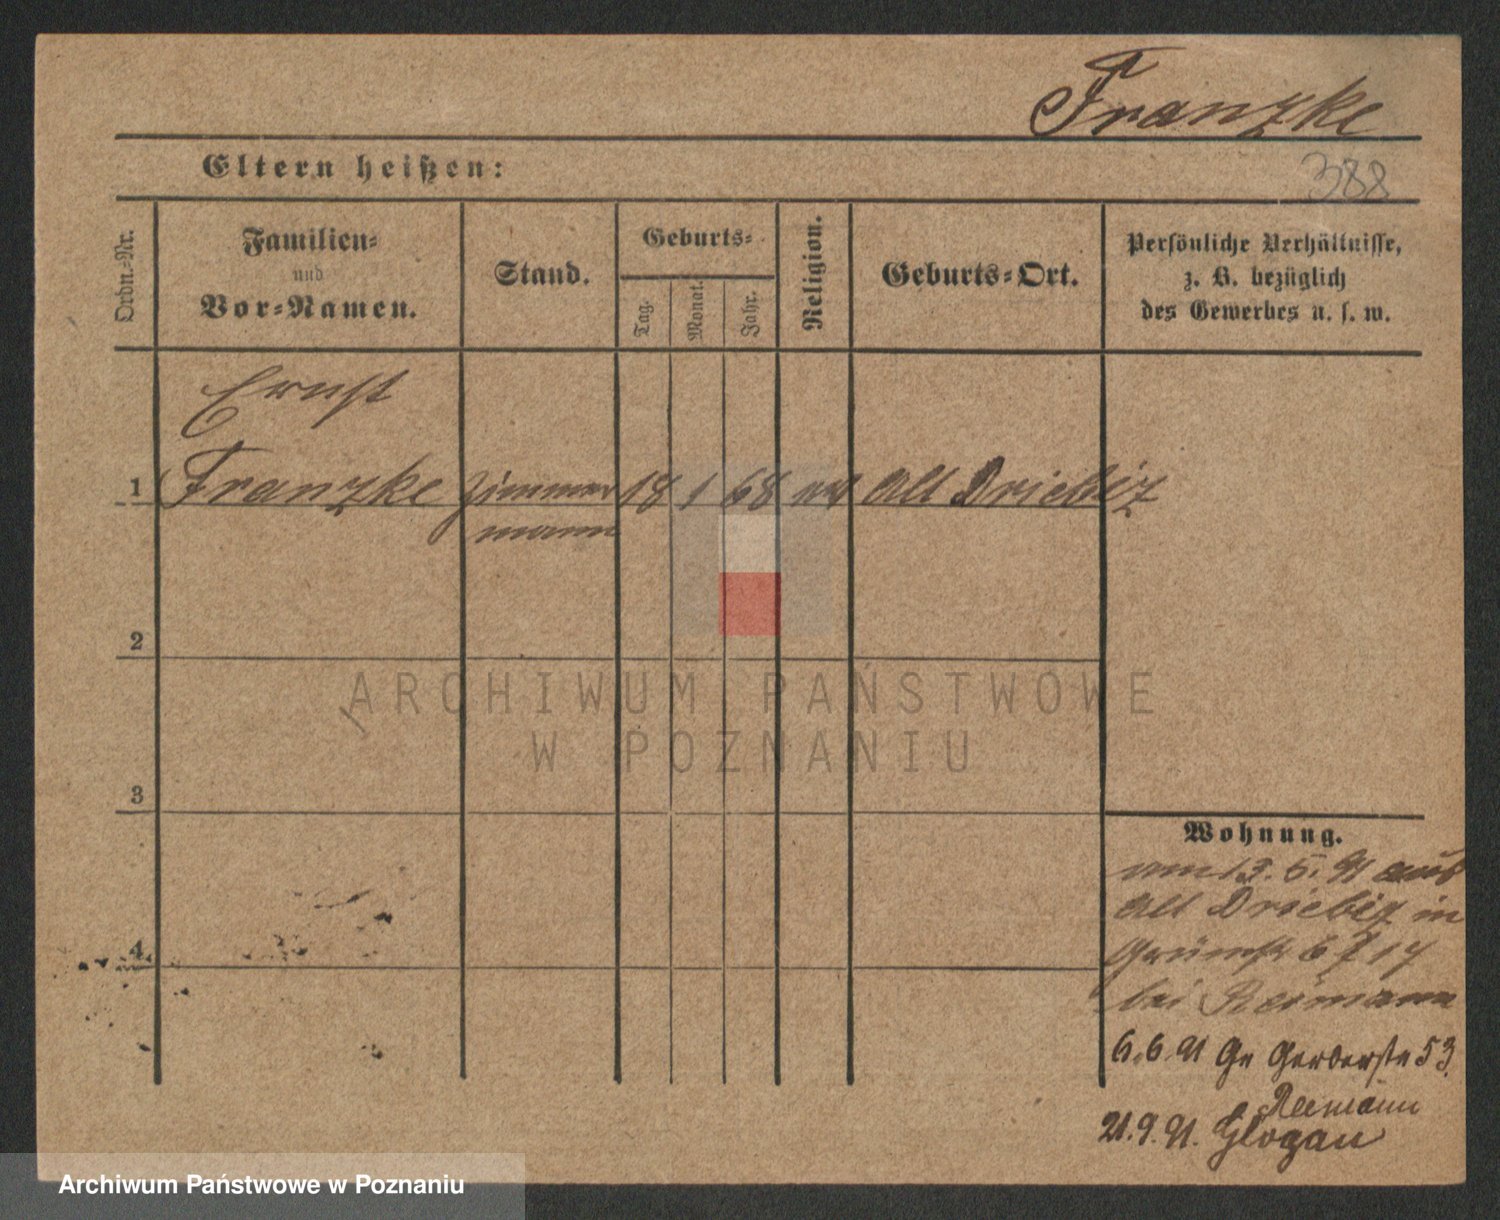 Franzke
388
Eltern heißen:
Ordn.-Nr.
Familien-
und
Vor-Namen.
Stand.
Geburts-
Tag.
Monat.
Jahr.
Religion.
Geburts-Ort.
Persönliche Verhältnisse,
z. B. bezüglich
des Gewerbes u. s. w.
Ernst
1 Franzke Zimmer 18 1 68 Alt Driebitz
mann
2
3
4
ARCHIWUM PAŃSTWOWE
W POZNANIU
Wohnung.
13. 5. 91 aus
Alt Driebitz in
6 17
bei Reimann
6. 6. 91 Gr Gerberstr 53.
Reimann
21. 9. 91. Glogau
Archiwum Państwowe w Poznaniu